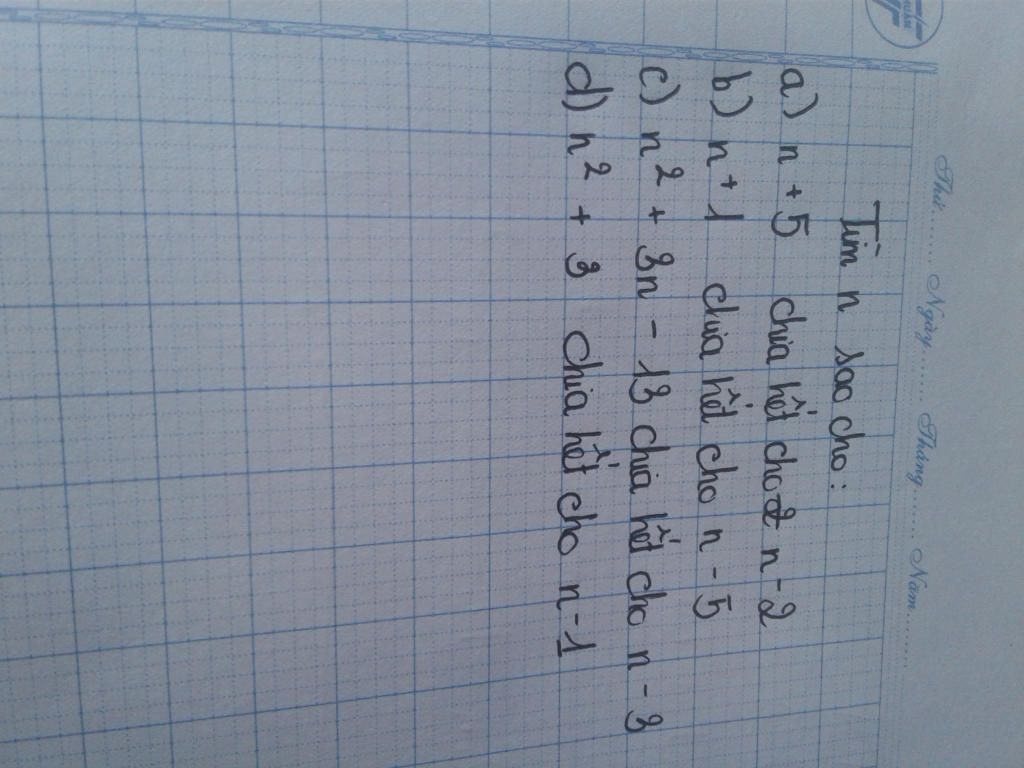 Thứ......... Ngày......... Tháng......... Năm.........
Tìm n sao cho:
a) n + 5 chia hết cho n - 2
b) n + 1 chia hết cho n - 5
c) n² + 3n - 13 chia hết cho n - 3
d) n² + 3 chia hết cho n - 1